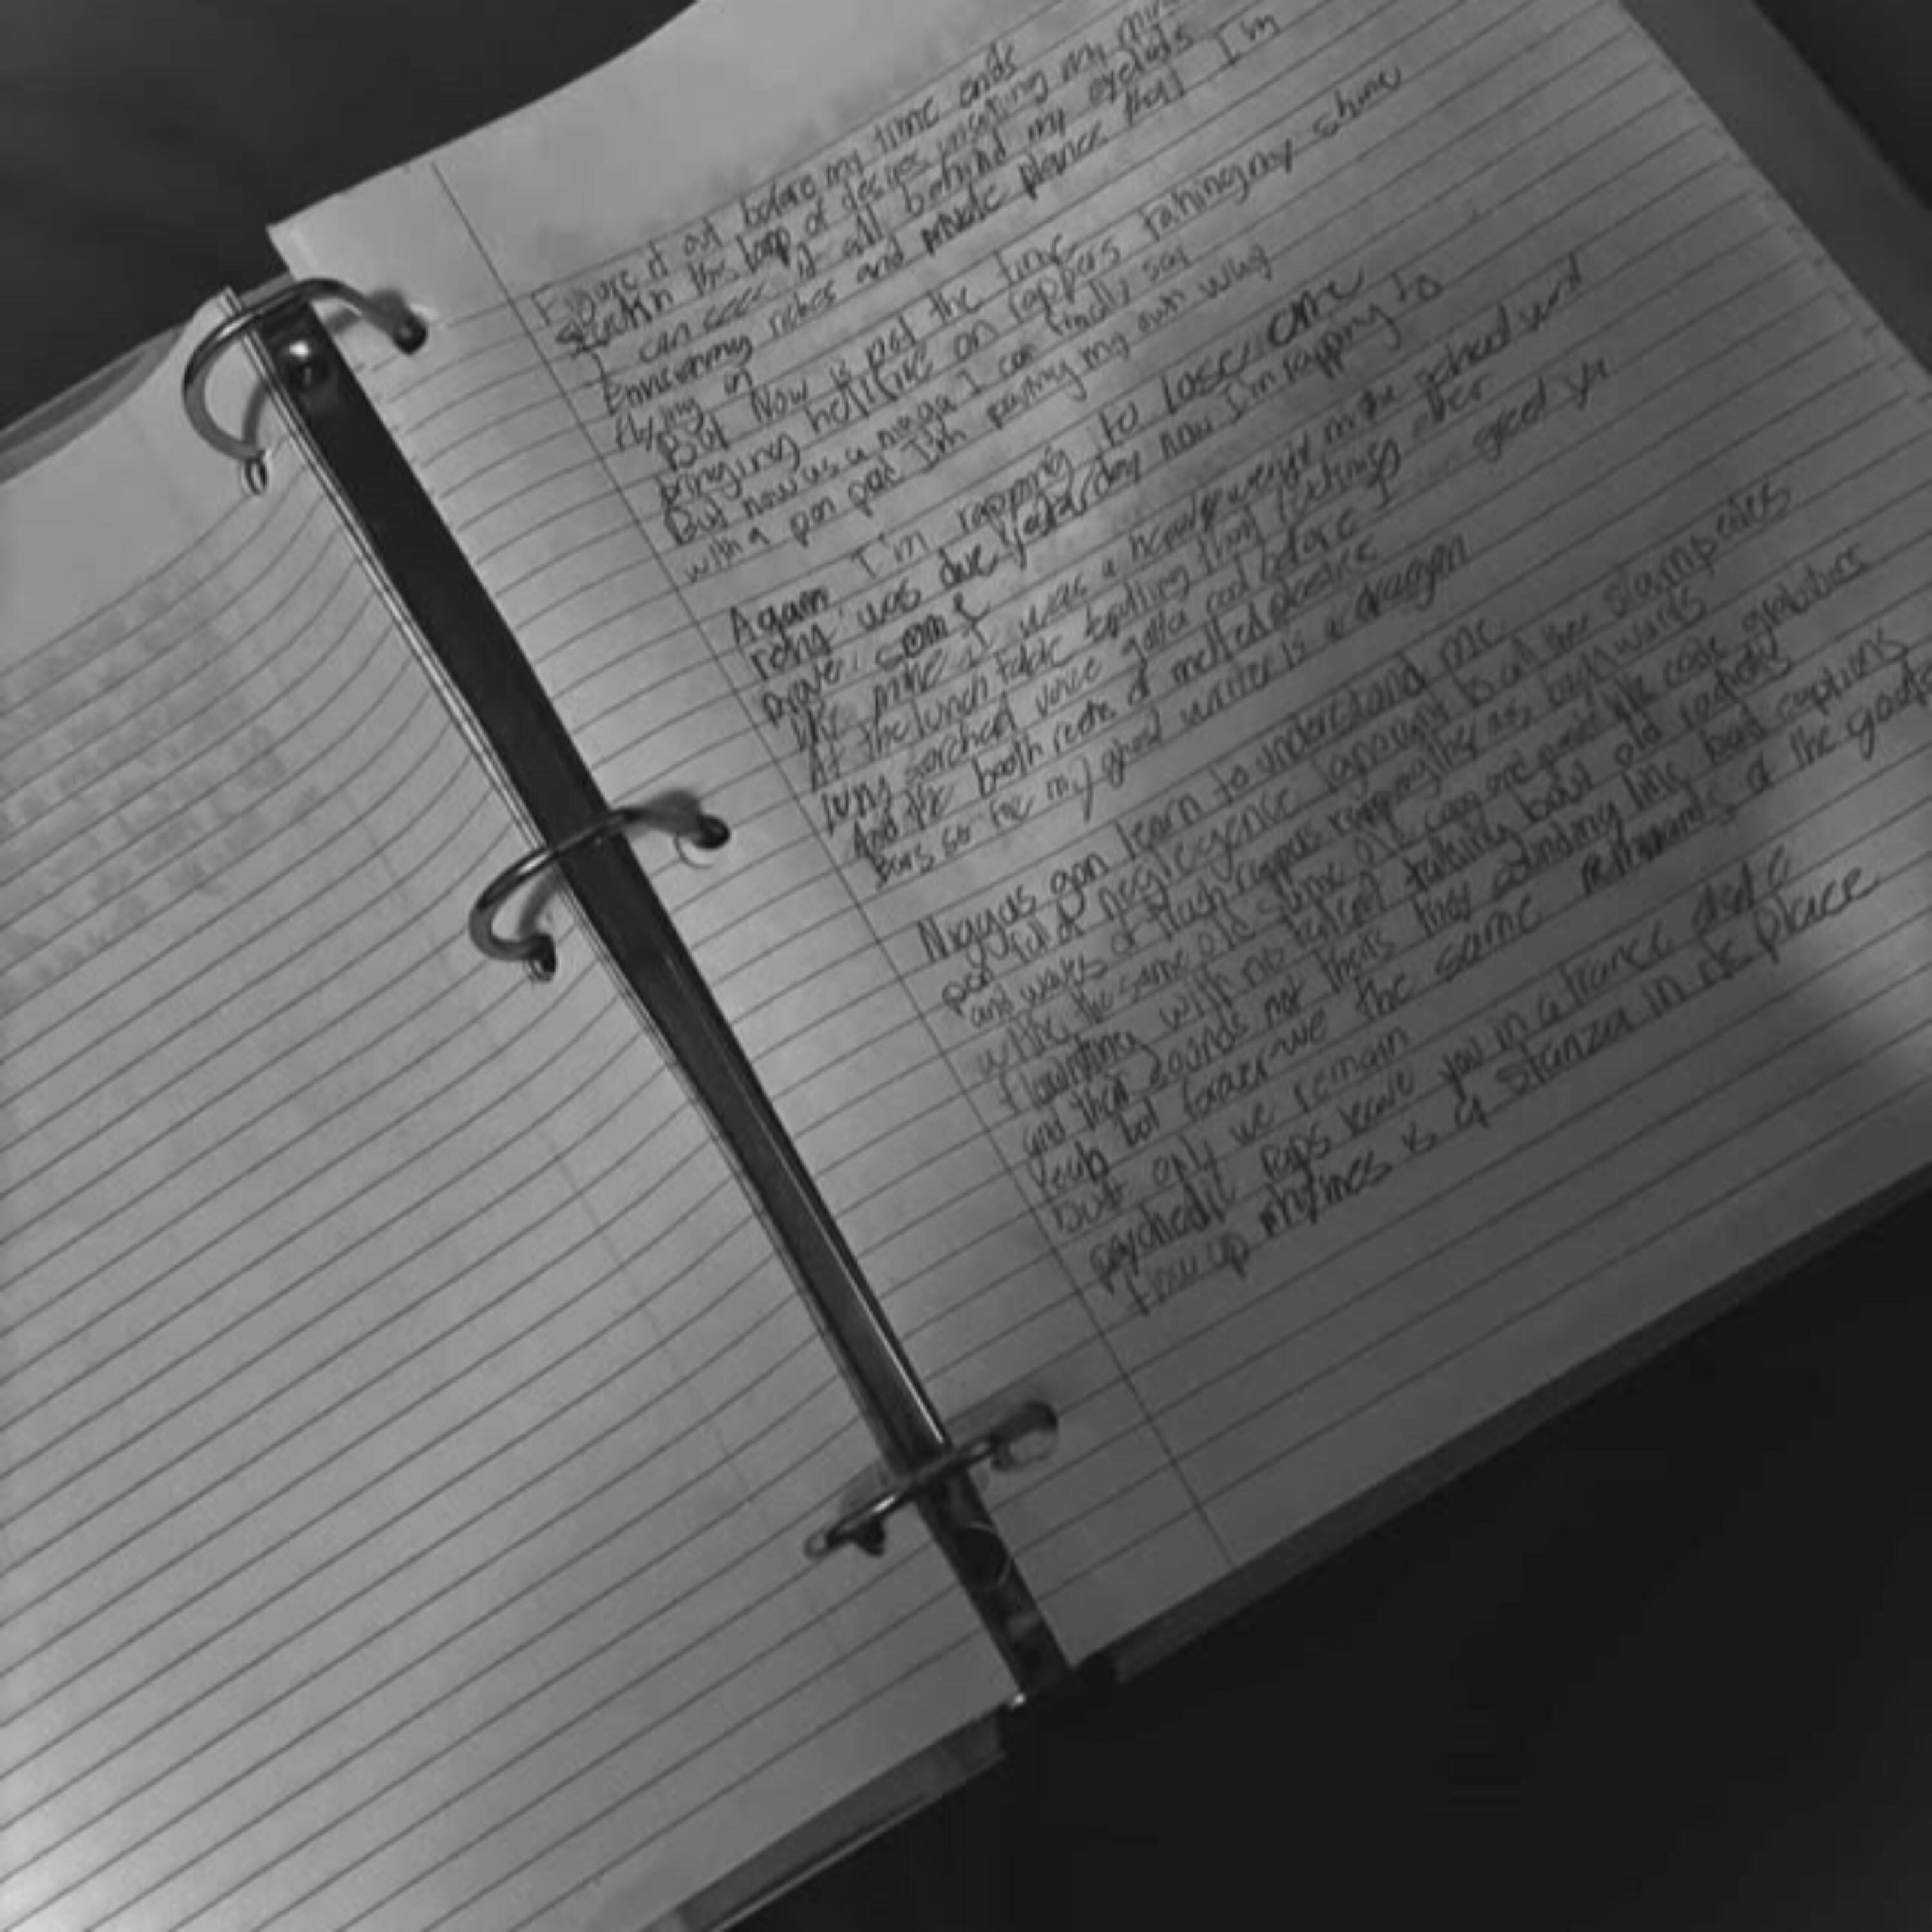 Figure it out before my time ends
stuck in this loop of desires wasting my mind
I can see it all behind my eyelids
Envisioning riches and private planes that I'm
flying in
But Now is not the time
bringing hellfire on rappers taking my shine
But now as a nigga I can finally say
with a pen pad I'm paving my own way
Again I'm rapping to lose, one
rent was due yesterday now I'm rapping to
prove, som
like mike I was a heavyweight in the school yard
At the lunch table spitting that fucking ether
lung scorched voice gotta cool before I greet ya
And the booth reeks of melted plastic
Bars so fie my ghost writer is a dragon
Niggas gon learn to understand me
pen full of negligence ignorant to all the stampedes
and waves of trash rappers rapping they ass backwards
with the same old same old
flaunting with no talent talking bout old
and that sounds not theirs they adding bad captions
Yeah but forever we the same remnants of the
but only we remain
psychedelic raps leave you in a trance and a
follow up rhymes is a stanza in its place